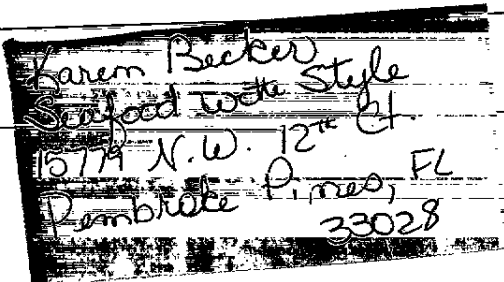 Karem Becker
Seafood With Style
15779 N.W. 12th Ct.
Pembroke Pines, FL
33028